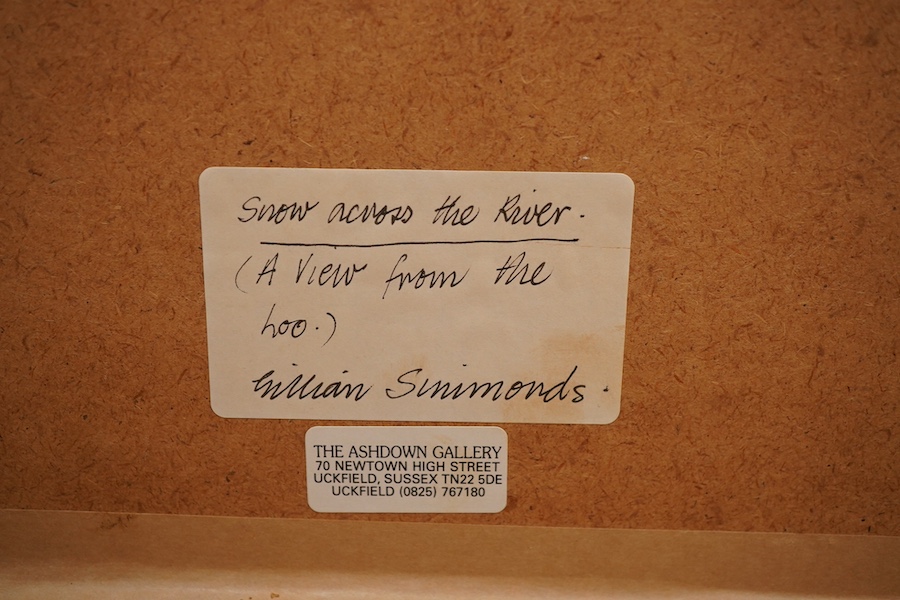 Snow across the River.
(A View from the
Loo.)
Gillian Simmonds.
THE ASHDOWN GALLERY
70 NEWTOWN HIGH STREET
UCKFIELD, SUSSEX TN22 5DE
UCKFIELD (0825) 767180